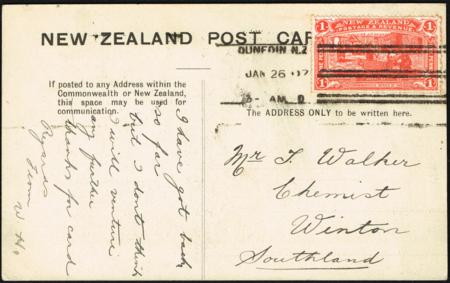 NEW ZEALAND POST CAR
NEW ZEALAND
POSTAGE & REVENUE
1 1
DUNEDIN N.Z
JAN 26 07
3- AM
If posted to any Address within the
Commonwealth or New Zealand,
this space may be used for
communication.
The ADDRESS ONLY to be written here.
I have got back
so far
but I dont think
I will venture
any further
Thanks for card
Regards
From
W H.
Mr T. Walker
Chemist
Winton
Southland